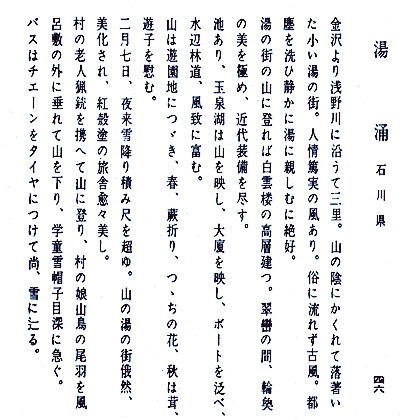 湯涌 石川県
金沢より浅野川に沿うて三里。山の陰にかくれて落著い
た小い湯の街。人情篤実の風あり。俗に流れず古風。都
塵を洗ひ静かに湯に親しむに絶好。
湯の街の山に登れば白雲楼の高層建つ。翠巒の間、輪奐
の美を極め、近代装備を尽す。
池あり、玉泉湖は山を映し、大廈を映し、ボートを泛べ、
水辺林道、風致に富む。
山は遊園地につゞき、春、蕨折り、つゝぢの花、秋は茸、
遊子を慰む。
二月七日、夜来雪降り積み尺を超ゆ。山の湯の街俄然、
美化され、紅殻塗の旅舎愈々美し。
村の老人猟銃を携へて山に登り、村の娘山鳥の尾羽を風
呂敷の外に垂れて山を下り、学童雪帽子目深に急ぐ。
バスはチエーンをタイヤにつけて尚、雪に辷る。
四六